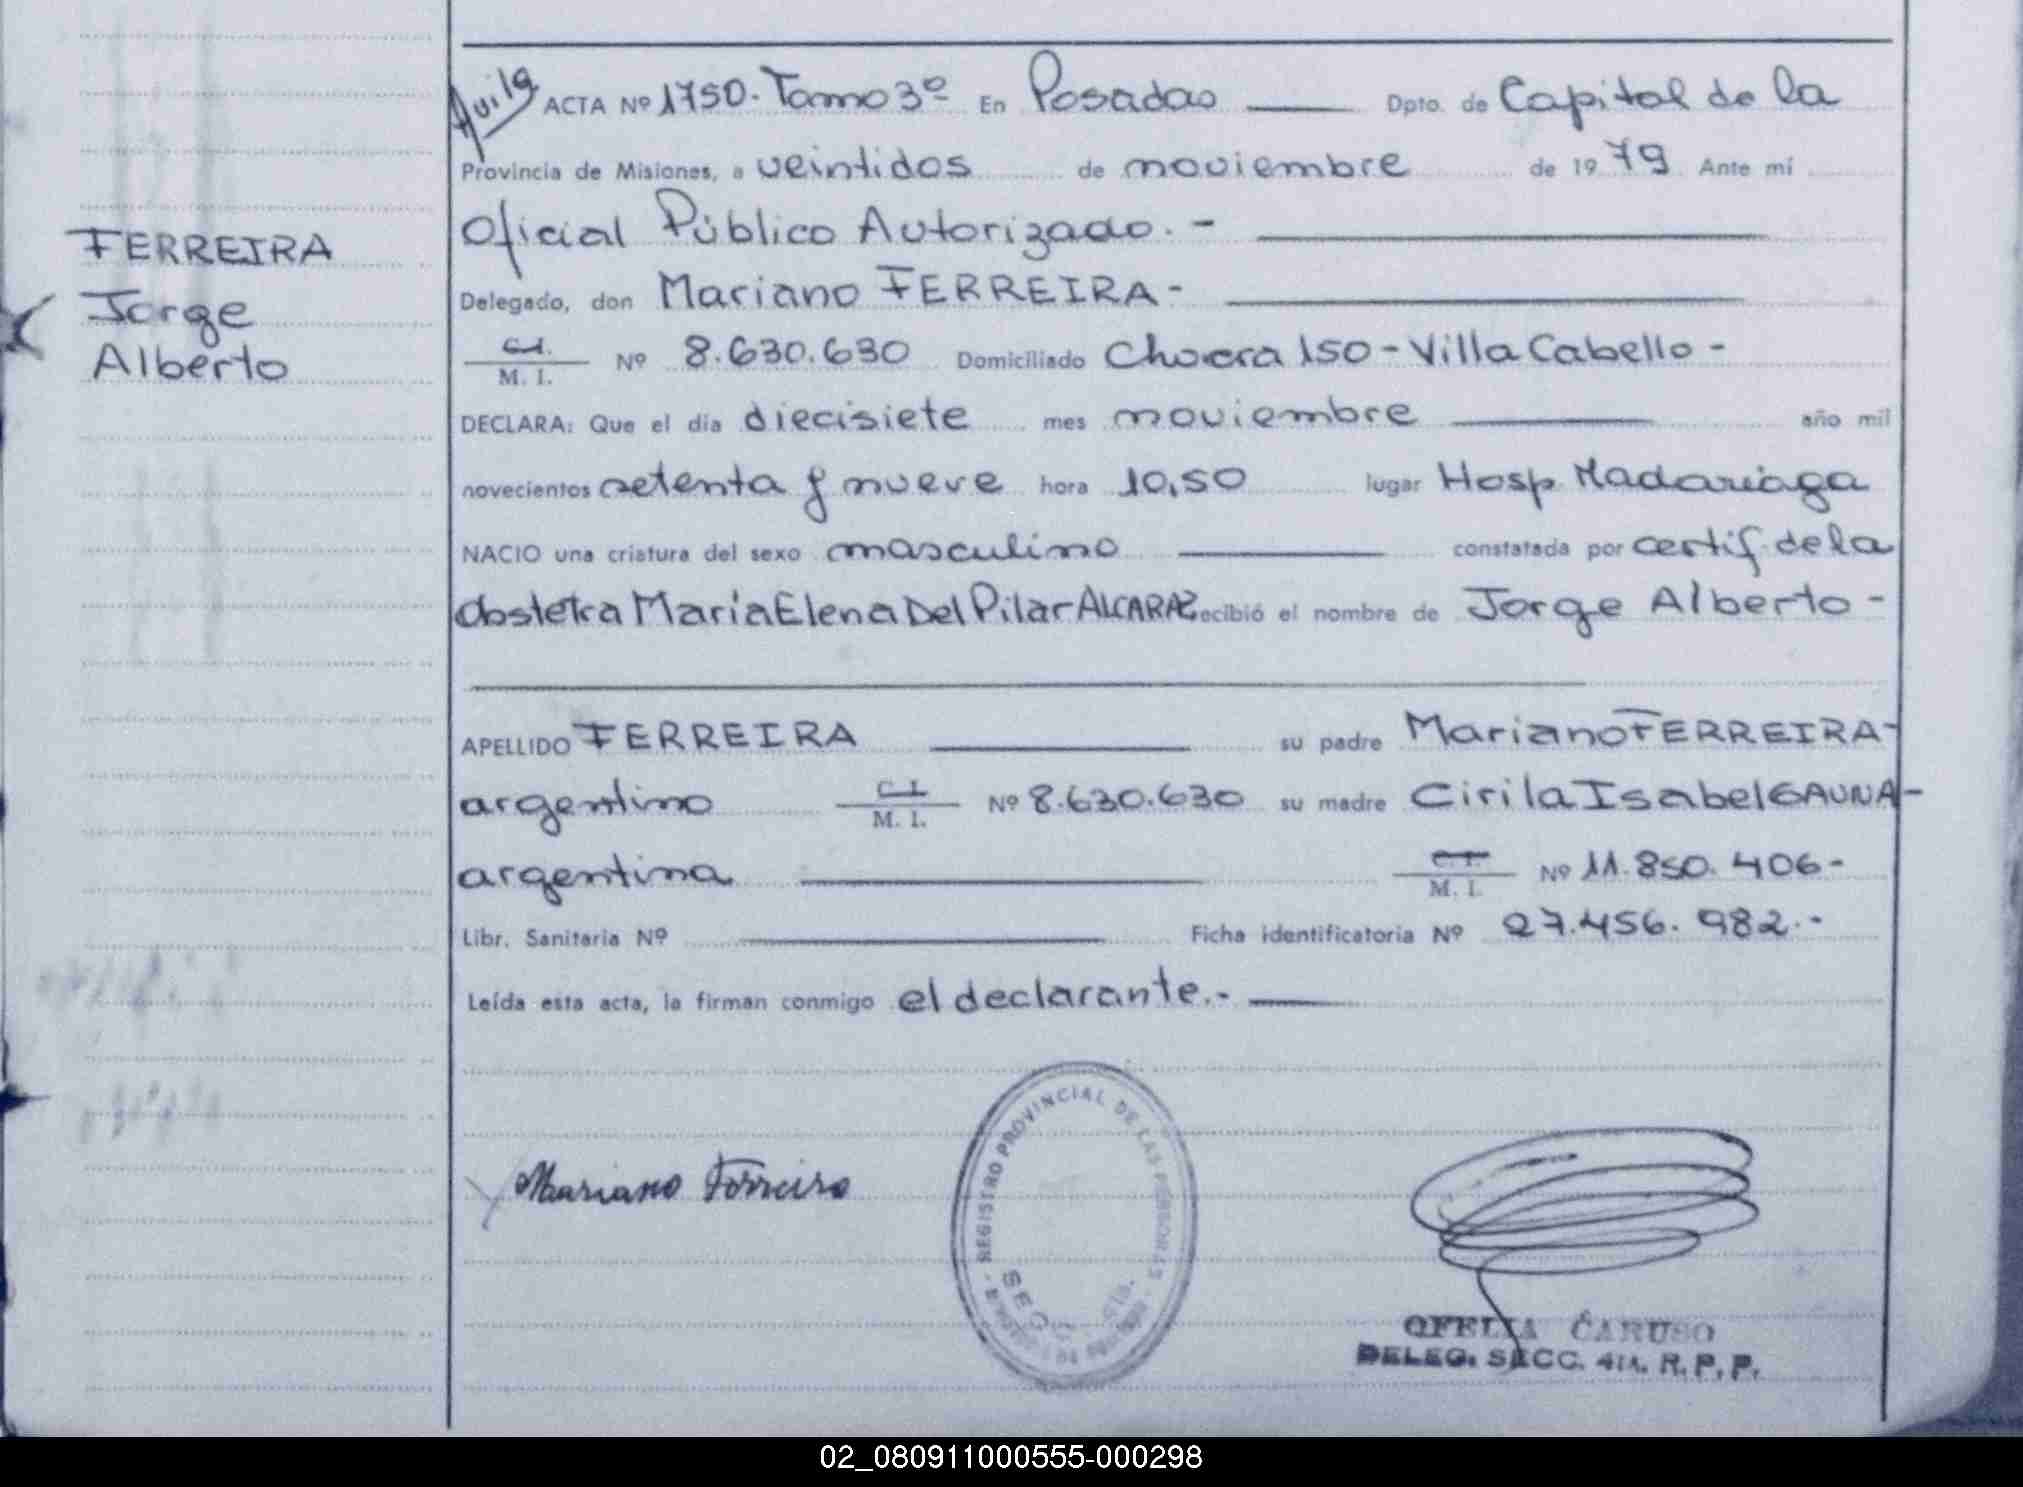 FERREIRA
Jorge
Alberto
ACTA Nº 1750. Tomo 3º En Posadas Dpto. de Capital de la
Provincia de Misiones, a veintidos de noviembre de 1979 Ante mí
Oficial Público Autorizado. -
Delegado, don Mariano FERREIRA -
C.I.
M. I. Nº 8.630.630 Domiciliado Chacra 150 - Villa Cabello -
DECLARA: Que el día diecisiete mes noviembre año mil
novecientos setenta y nueve hora 10,50 lugar Hosp. Madariaga
NACIO una criatura del sexo masculino constatada por certif. de la
Obstetra María Elena Del Pilar ALCARAZ recibió el nombre de Jorge Alberto -
APELLIDO FERREIRA su padre Mariano FERREIRA -
argentino C.I. M. I. Nº 8.630.630 su madre Cirila Isabel GAUNA -
argentina C.I. M. I. Nº 11.850.406 -
Libr. Sanitaria Nº Ficha identificatoria Nº 27.456.982. -
Leída esta acta, la firman conmigo el declarante. -
Mariano Ferreira
REGISTRO PROVINCIAL DE LAS PERSONAS
SECC.
OFELIA CARUSO
DELEG. SECC. 4ta. R. P. P.
02_080911000555-000298